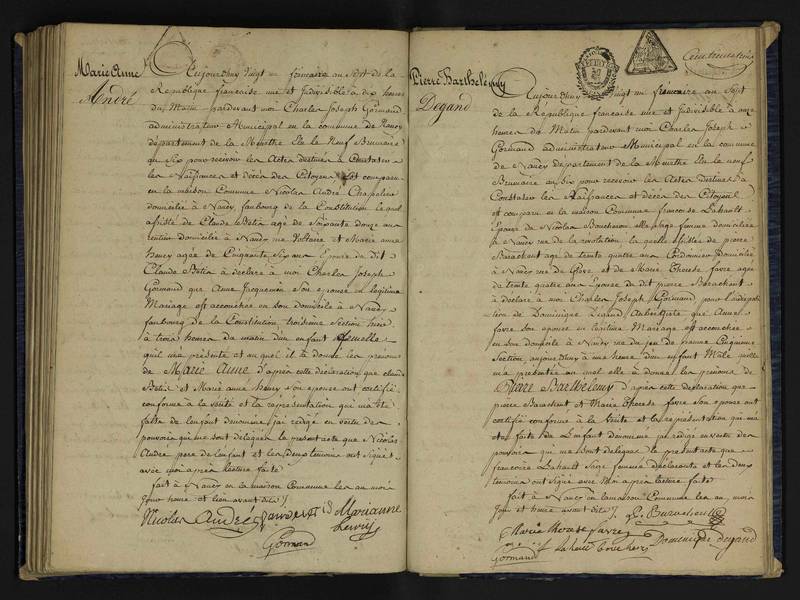 Marie Anne
André
Aujourd'huy vingt un frimaire an Sept de la
République française une et Indivisible à dix heures
du Matin pardevant moi Charles Joseph Gormand
administrateur Municipal en la commune de Nancy
département de la Meurthe Elu le Neuf Brumaire
an Six pour recevoir les Actes destinés à Constater
les Naissances et décès des Citoyens Est comparu
en la maison Commune Nicolas André Chapelier
domicilié à Nancy faubourg de la Constitution lequel
assisté de Claude agé de Soixante douze ans
rentier domicilié à Nancy rue Voltaire et Marie anne
henry agée de Cinquante Six ans Epouse du dit
Claude à déclaré à moi Charles Joseph
Gormand que Anne Jacquemin Son epouse en legitime
Mariage est accouchée en son domicile à Nancy
faubourg de la Constitution troisieme Section hier
à trois heures du matin d'un enfant femelle
quil ma présenté et au quel il a donné les prénoms
de Marie Anne d'après cette déclaration que claude
et Marie anne henry son epouse ont certifié
conforme à la vérité et la représentation qui m'a été
faite de l'enfant denommé j'ai rédigé en vertu des
pouvoirs qui me sont délégués le présent acte que Nicolas
André pere de lenfant et les deux temoins ont signé
avec moi après lecture faite
fait à Nancy en la maison Commune les an mois
Jour heure et lieu avant dits
Nicolas André Marianne
henry
Gormand
Pierre Barthelémy
Degand
Aujourdhuy vingt un frimaire an Sept
de la République française une et Indivisible à onze
heures du Matin pardevant moi Charles Joseph
Gormand administrateur Municipal en la commune
de Nancy département de la Meurthe Elu le neuf
Brumaire an Six pour recevoir les Actes destinés à
Constater les Naissances et décès des Citoyens
est comparu en la maison Commune francoise Lahoult
Epouse de Nicolas Boucheron elle Sage femme domiciliée
à Nancy rue de la revolution laquelle assistée de pierre
Barachent agé de trente quatre ans Cordonnier domicilié
à Nancy rue de Grève et de Marie Therese favre agée
de trente quatre ans Epouse du dit pierre Barachent
à déclaré à moi Charles Joseph Gormand
de Dominique Degand Aubergiste que Anne
favre Son epouse en legitime Mariage est accouchée
en son domicile à Nancy rue du jeu de paume Cinquieme
Section aujourdhuy à une heure d'un enfant Male quelle
m'a présenté au quel elle à donné les prénoms de
Pierre Barthelemy d'après cette déclaration que
pierre Barachent et Marie Therese favre Son epouse ont
certifié conforme à la vérité et la représentation qui ma
eté faite de Lenfant denommé jai rédigé en vertu des
pouvoirs qui me sont délégués le présent acte que
francoise Lahoult Sage femme déclarante et les deux
temoins ont signé avec Moi après lecture faite
fait à Nancy en la maison Commune les an mois
Jour et heure avant dits
Marie therese favre
Gormand Dominique degand